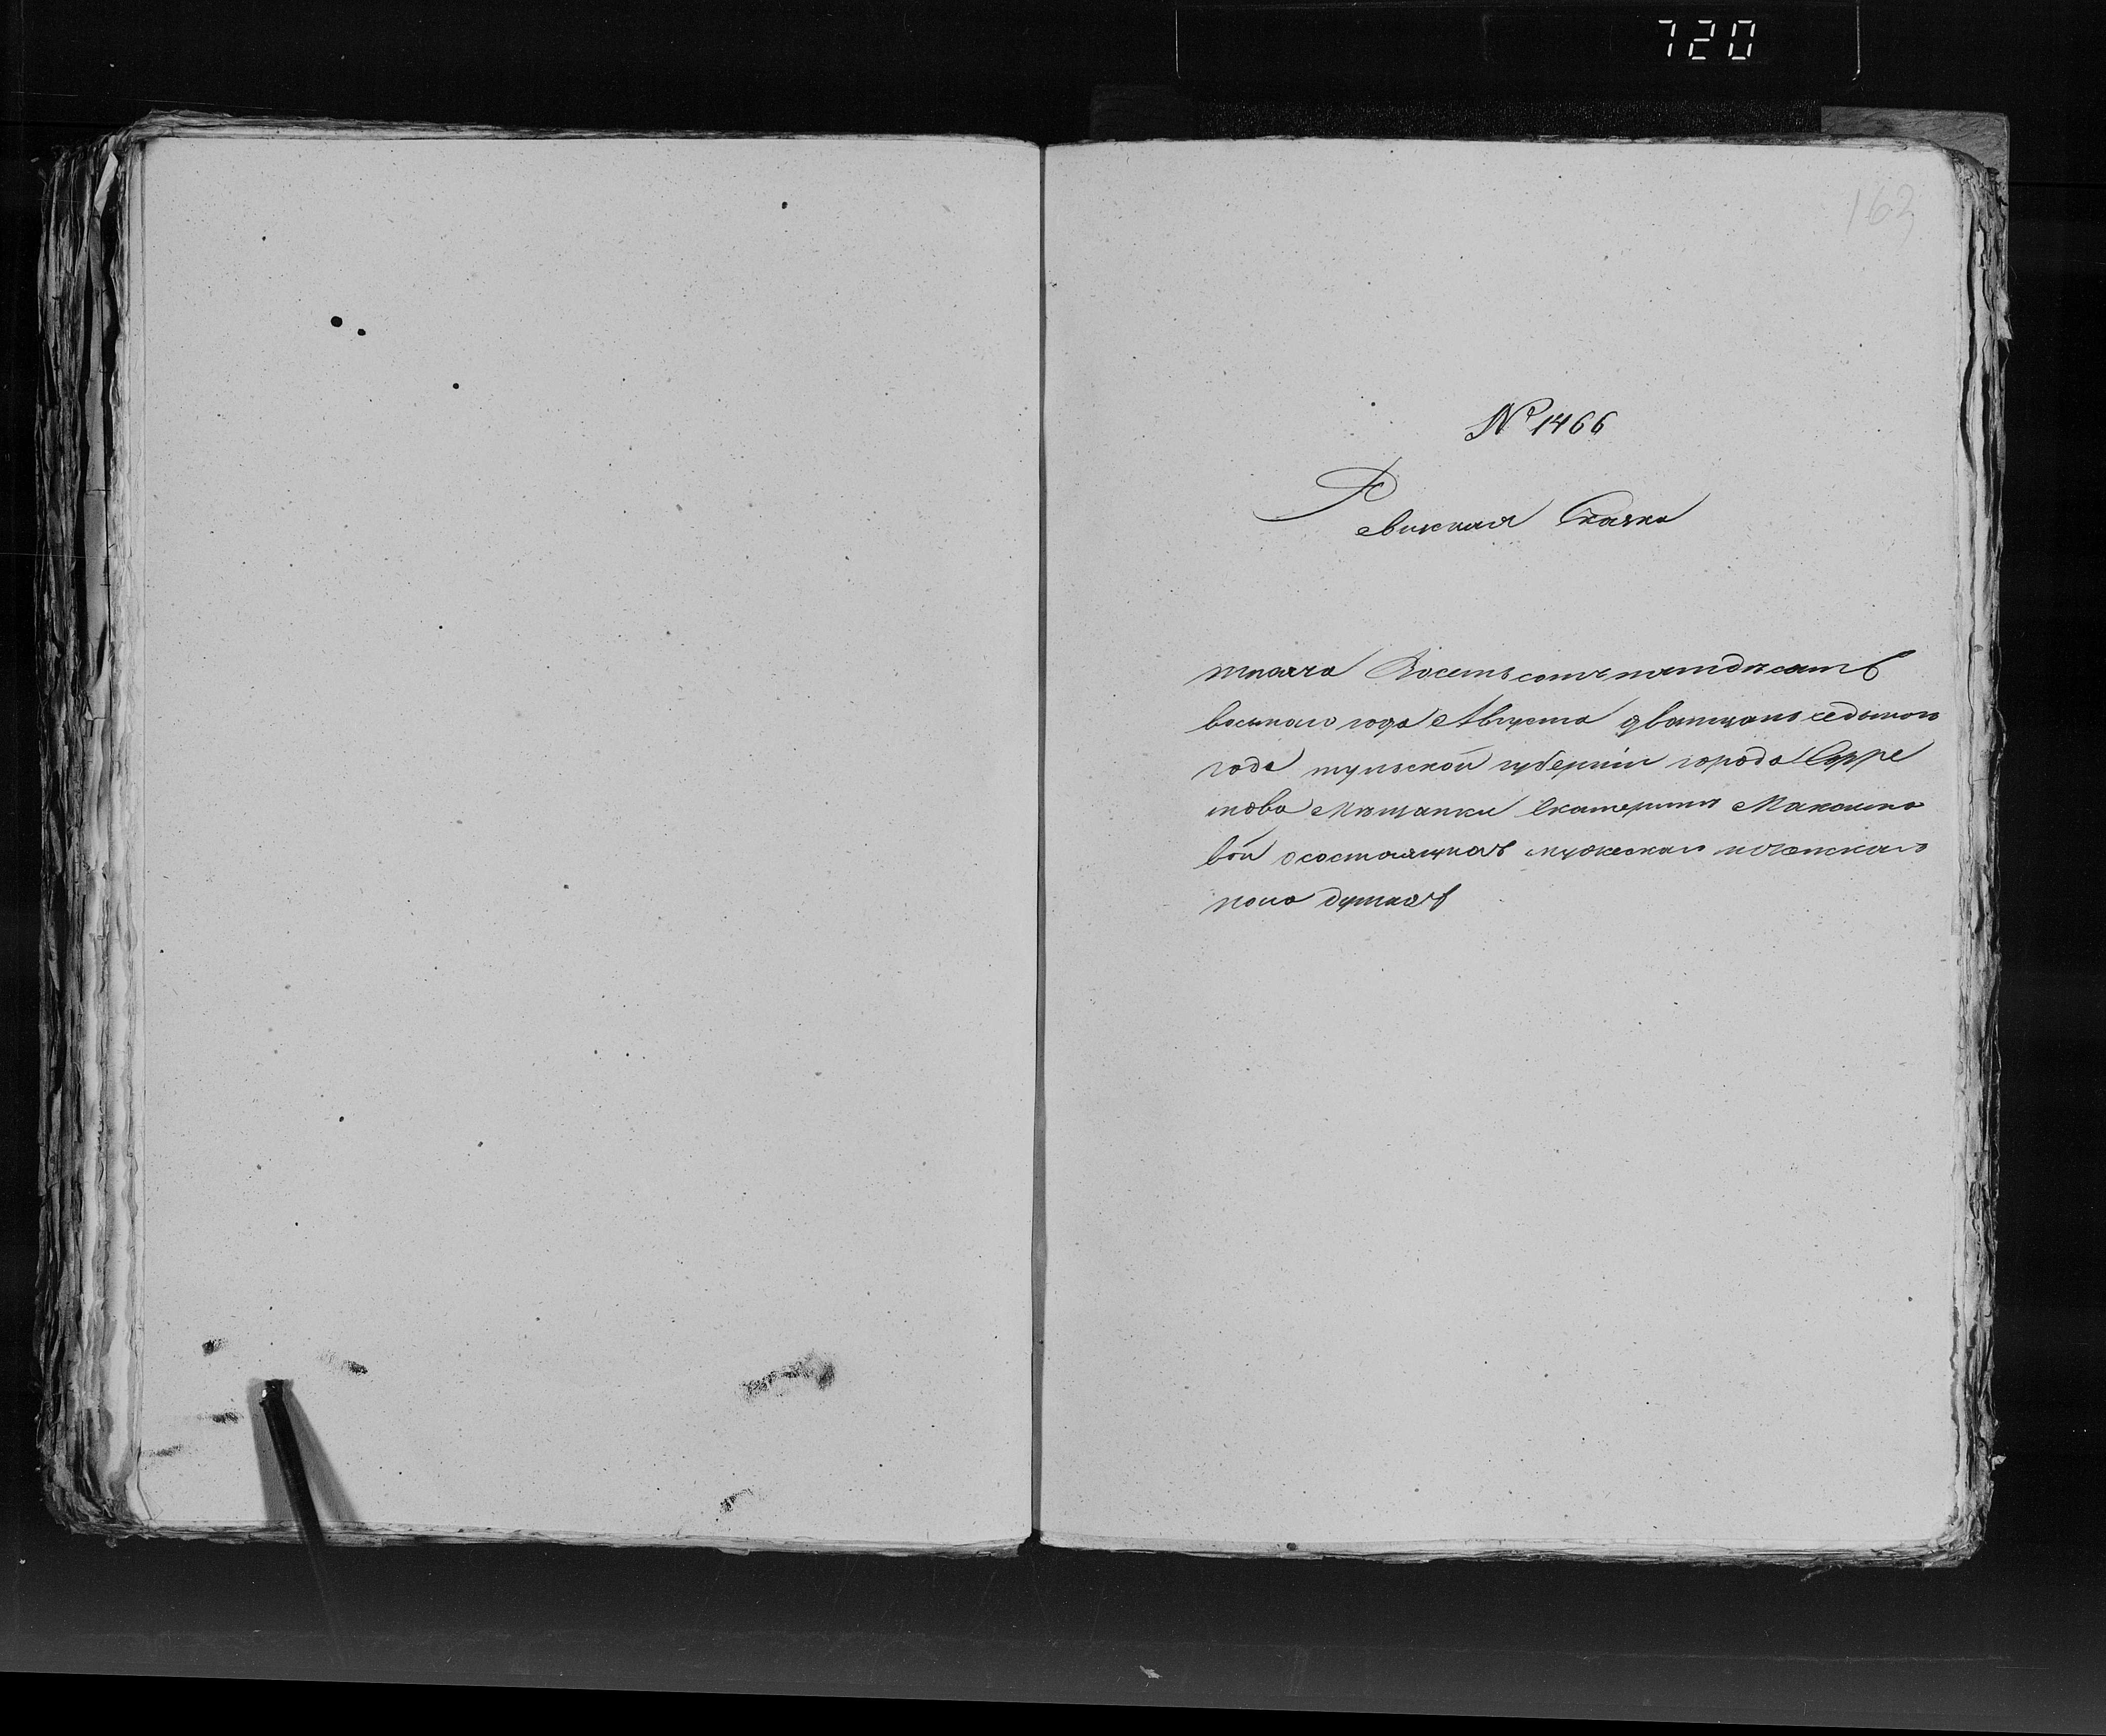 720
163
№ 1466
Ревизская Сказка
тысяча Восемьсотъ пятдесятъ
восьмаго года Августа двацать седьмого
года тульской губерніи города
Мѣщанки Екатерины Максимо
вой осостоящихъ мужескаго иженскаго
пола душахъ